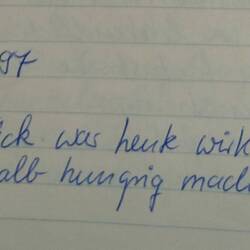 97
ück was heute wirk
alb hungrig mach